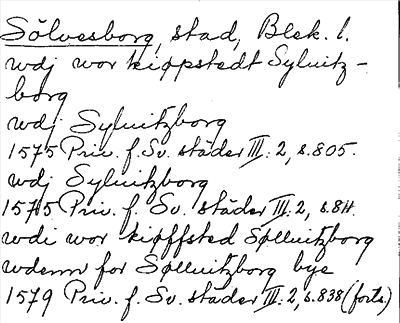 Sölvesborg, stad, Blek. l.
wdj wor kiøpstedt Syluitz-
borg
wdj Syluitzborg
1575 Priv. f. Sv. städer III: 2, s. 805.
wdj Syluitzborg
1575 Priv. f. Sv. städer III: 2, s. 811.
wdi wor kiøffsted Sølluitzborg
wdenn for Sølluitzborg bye
1579 Priv. f. Sv. städer III: 2, s. 838 (forts.)